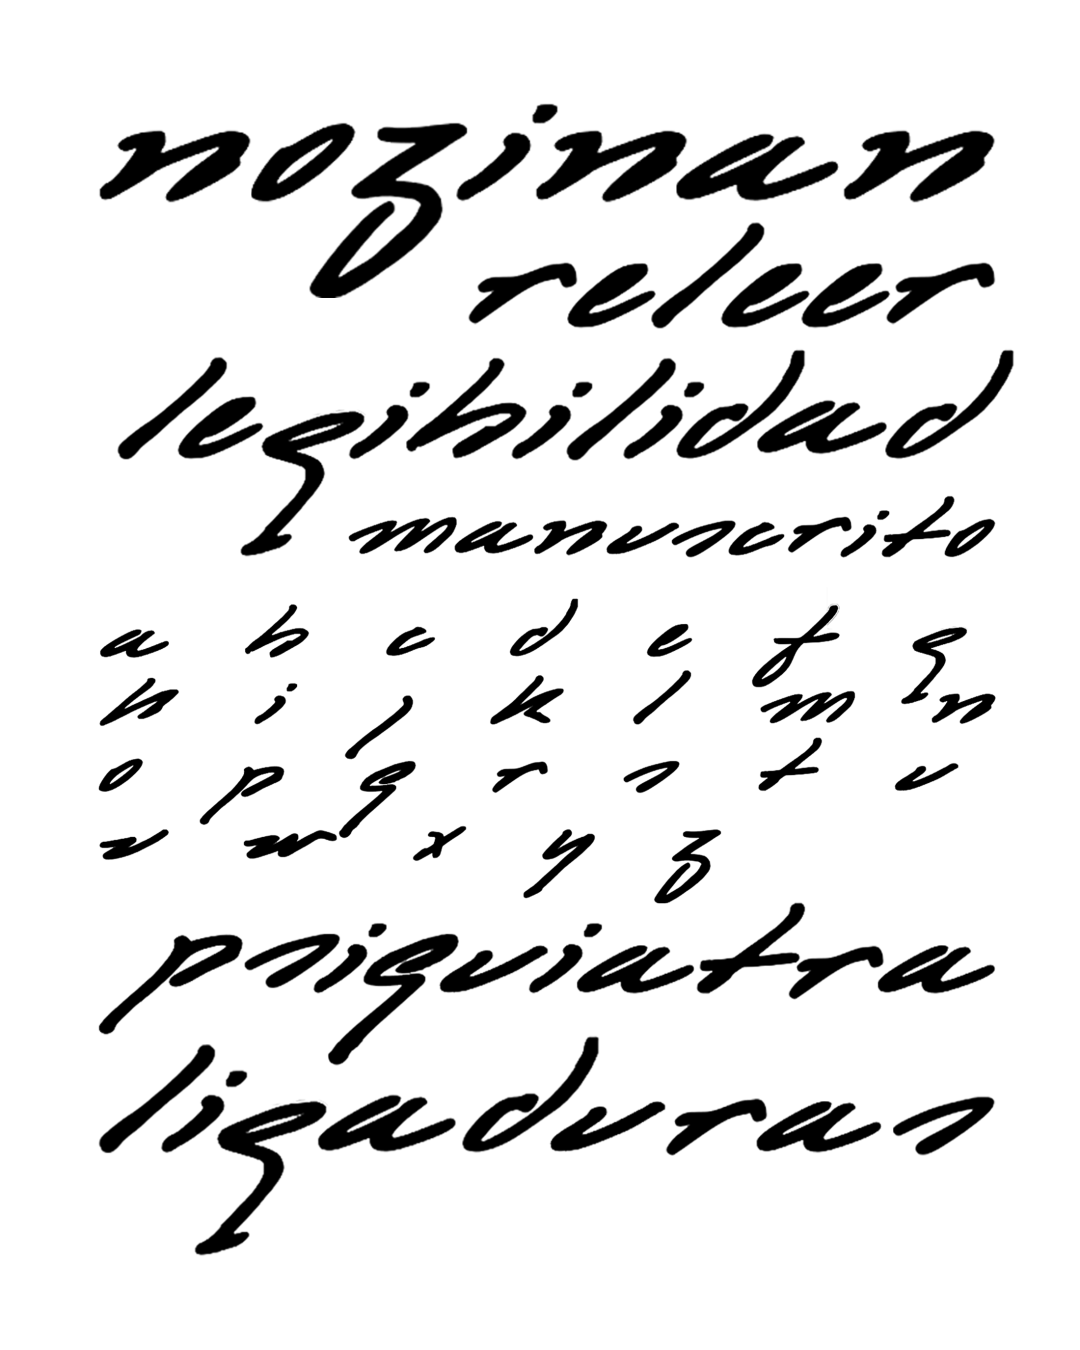 nozinan
releer
legibilidad
manuscrito
a b c d e f g
h i j k l m n
o p q r s t u
v w x y z
psiquiatra
ligaduras